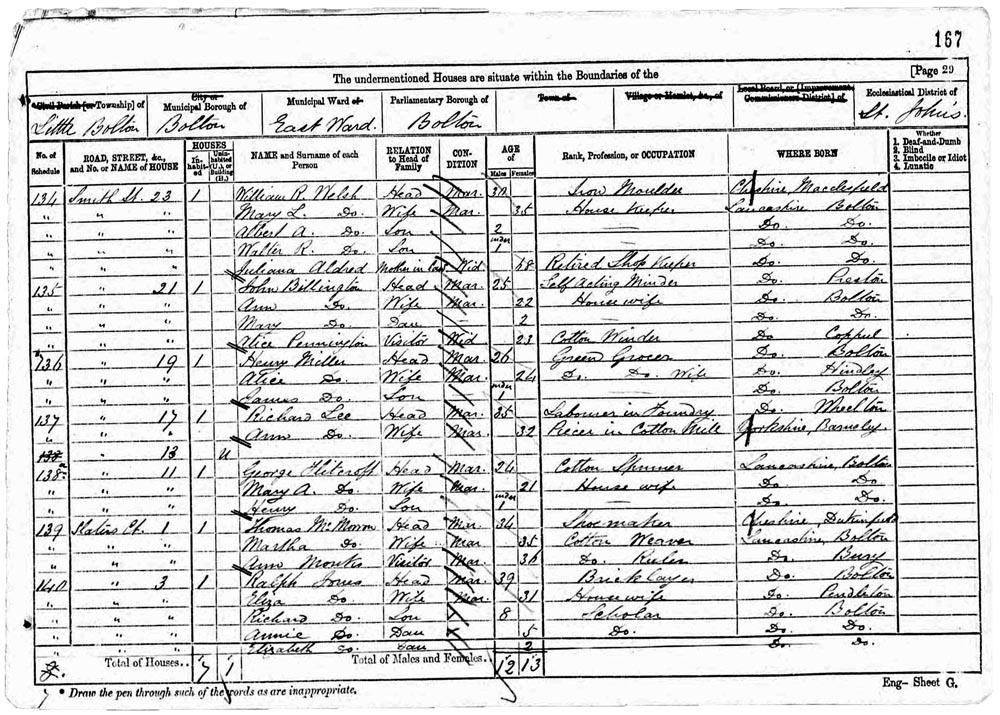 167
The undermentioned Houses are situate within the Boundaries of the [Page 29
Civil Parish [or Township] of City or Municipal Borough of Municipal Ward of Parliamentary Borough of Town of Village or Hamlet, &c., of Local Board, or [Improvement Commissioners District] of Ecclesiastical District of
Little Bolton Bolton East Ward. Bolton St. John's.
No. of Schedule ROAD, STREET, &c., and No. or NAME of HOUSE HOUSES Inhabited Uninhabited (U.), or Building (B.) NAME and Surname of each Person RELATION to Head of Family CONDITION AGE of Males Females Rank, Profession, or OCCUPATION WHERE BORN Whether 1. Deaf-and-Dumb 2. Blind 3. Imbecile or Idiot 4. Lunatic
134 Smith St. 23 1 William R. Welsh Head Mar. 30 Iron Moulder Cheshire, Macclesfield
" " " Mary L. Do. Wife Mar. 35 House Keeper Lancashire Bolton
" " " Albert A. Do. Son 2 — Do. Do.
" " " Walter R. Do. Son under 1 — Do. Do.
" " " Juliana Aldred Mother in law Wid 68 Retired Shop Keeper Do. Do.
135 " 21 1 John Billington Head Mar. 25 Self Acting Minder Do. Preston
" " " Ann Do. Wife Mar. 22 House wife Do. Bolton
" " " Mary Do. Dau 2 — Do. Do.
" " " Alice Pennington Visitor Wid 23 Cotton Winder Do Coppul
136 " 19 1 Henry Miller Head Mar. 26 Green Grocer Do. Bolton
" " " Alice Do. Wife Mar. 24 Do. Do. Wife Do. Hindley
" " " James Do. Son under 1 — Do. Bolton
137 " 17 1 Richard Lee Head Mar. 35 Labourer in Foundry Do. Wheelton
" " " Ann Do. Wife Mar. 32 Piecer in Cotton Mill Yorkshire, Barnsley.
138 " 13 U
138a " 11 1 George Flitcroft Head Mar. 24 Cotton Spinner Lancashire, Bolton
" " " Mary A. Do. Wife Mar. 21 House wife Do. Do
" " " Henry Do. Son under 1 — Do. Do
139 Slaters Ct. 1 1 Thomas Mc Morron Head Mar. 34 Shoe maker Cheshire, Dukinfield
" " " Martha Do. Wife Mar 35 Cotton Weaver Lancashire, Bolton
" " " Ann Monks Visitor Mar. 30 Do. Ruler Do. Bury
140 " 3 1 Ralph Jones Head Mar. 39 Bricklayer Do. Bolton
" " " Eliza Do. Wife Mar. 31 House wife Do. Pendleton
" " " Richard Do. Son 8 Scholar Do. Bolton
" " " Annie Do. Dau 5 Do. Do. Do.
" " " Elizabeth Do. Dau 2 Do. Do.
Total of Houses.. 7 1 Total of Males and Females.. 12 13
* Draw the pen through such of the words as are inappropriate. Eng— Sheet G.